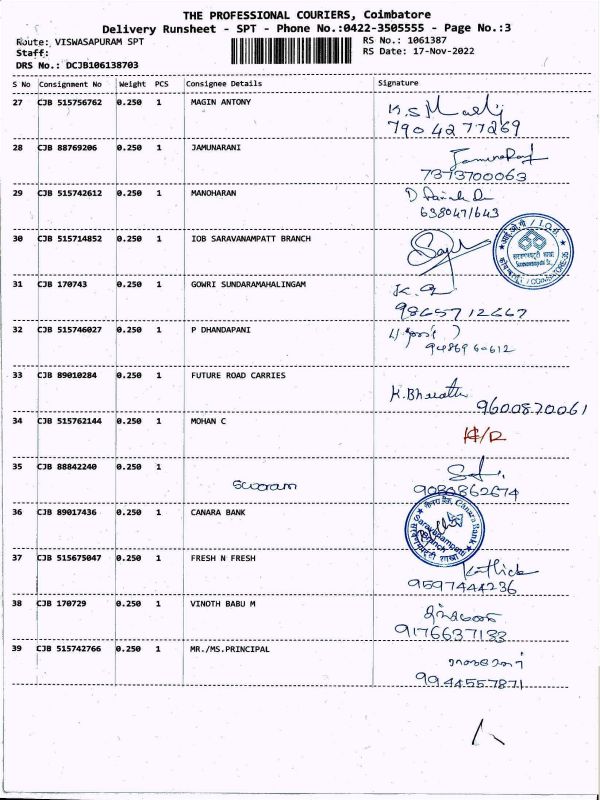 THE PROFESSIONAL COURIERS, Coimbatore
Delivery Runsheet - SPT - Phone No.:0422-3505555 - Page No.:3
Route: VISWASAPURAM SPT RS No.: 1061387
Staff: RS Date: 17-Nov-2022
DRS No.: DCJB106138703
S No Consignment No Weight PCS Consignee Details Signature
27 CJB 515756762 0.250 1 MAGIN ANTONY
7904277269
28 CJB 88769206 0.250 1 JAMUNARANI
7373700063
29 CJB 515742612 0.250 1 MANOHARAN
638047/643
30 CJB 515714852 0.250 1 IOB SARAVANAMPATT BRANCH
31 CJB 170743 0.250 1 GOWRI SUNDARAMAHALINGAM
9865712667
32 CJB 515746027 0.250 1 P DHANDAPANI
9486960612
33 CJB 89010284 0.250 1 FUTURE ROAD CARRIES
K.Bharath
9600870061
34 CJB 515762144 0.250 1 MOHAN C
35 CJB 88842240 0.250 1
9080862674
36 CJB 89017436 0.250 1 CANARA BANK
Canara Bank
37 CJB 515675047 0.250 1 FRESH N FRESH
Kathick
9597444236
38 CJB 170729 0.250 1 VINOTH BABU M
9176637133
39 CJB 515742766 0.250 1 MR./MS.PRINCIPAL
9944557871